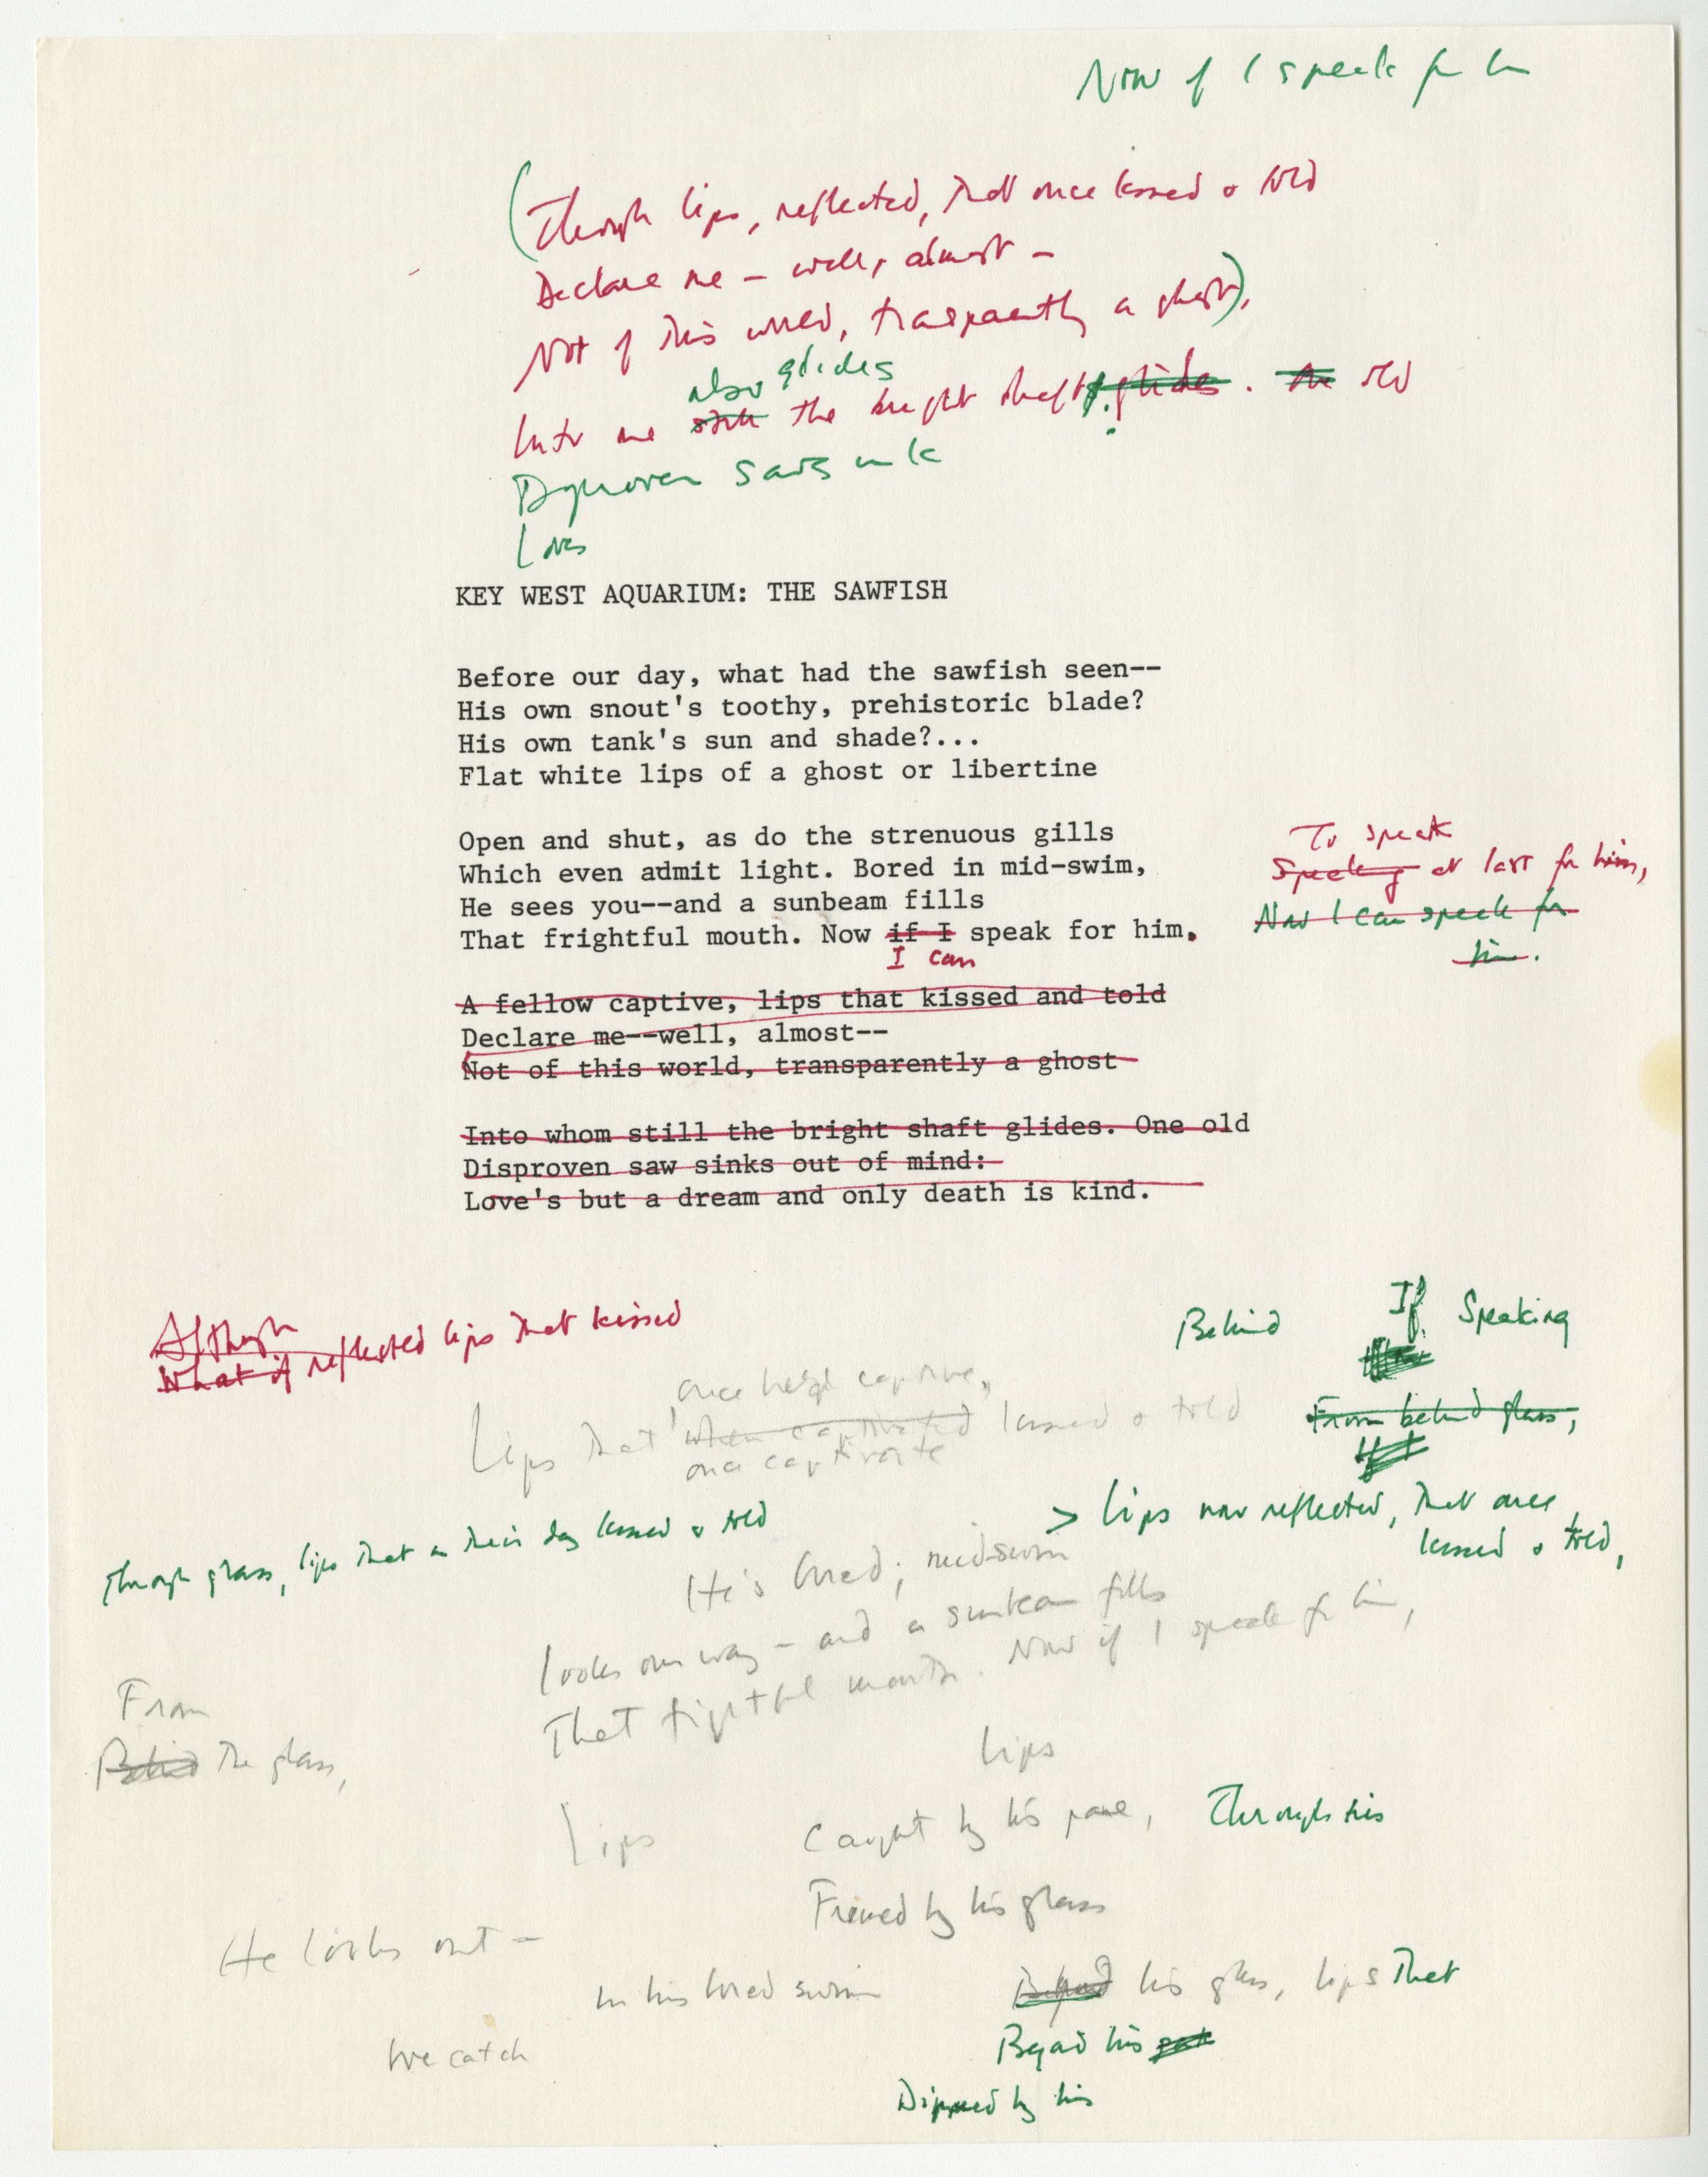 Now if I speak for him
(Though lips, reflected, that once kissed & told
Declare me — well, almost —
Not of this world, transparently a ghost),
also glides
Into me still the bright shaft glides. One old
Disproven saw sinks
Love's
KEY WEST AQUARIUM: THE SAWFISH
Before our day, what had the sawfish seen--
His own snout's toothy, prehistoric blade?
His own tank's sun and shade?...
Flat white lips of a ghost or libertine
Open and shut, as do the strenuous gills
Which even admit light. Bored in mid-swim,
He sees you--and a sunbeam fills
That frightful mouth. Now if I speak for him.
I can
To speak
Speaking at last for him,
Now I can speak for
him.
A fellow captive, lips that kissed and told
Declare me--well, almost--
Not of this world, transparently a ghost
Into whom still the bright shaft glides. One old
Disproven saw sinks out of mind:
Love's but a dream and only death is kind.
Although
What if reflected lips that kissed
Behind
If Speaking
once held captive,
Lips that when captivated kissed & told
once captivate
From behind glass,
If
> Lips now reflected, that once
kissed & told,
Through glass, lips that in their day kissed & told
He's bored; mid-swim
looks our way — and a sunbeam fills
That frightful mouth. Now if I speak for him,
From
Behind The glass,
Lips
Lips
Caught by his pane, Through his
Framed by his glass
He looks out —
In his bored swim
Beyond his glass, lips that
We catch
Beyond his
by his